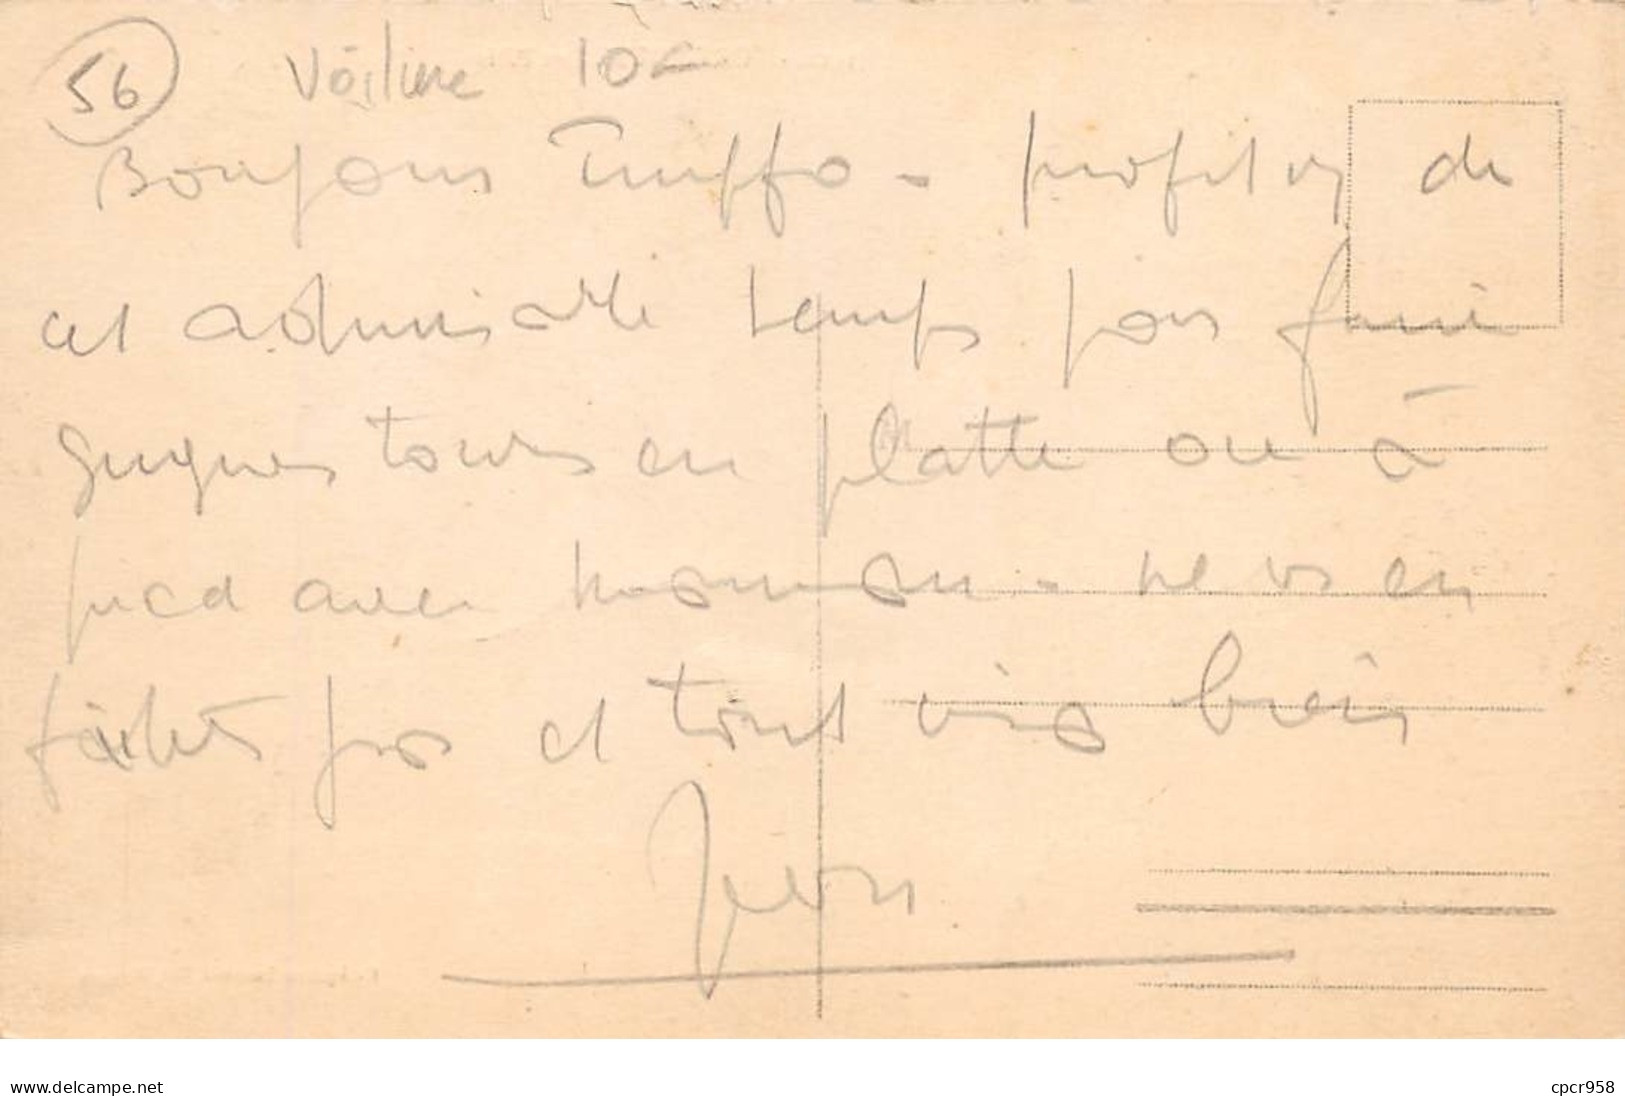 56 Voilure 10€
Bonjour Truffo - profitez de
cet admirable temps pour faire
quelques tours en patte ou à
pied avec maman - ne vs en
faites pas et tout ira bien
Jean
www.delcampe.net cpcr958